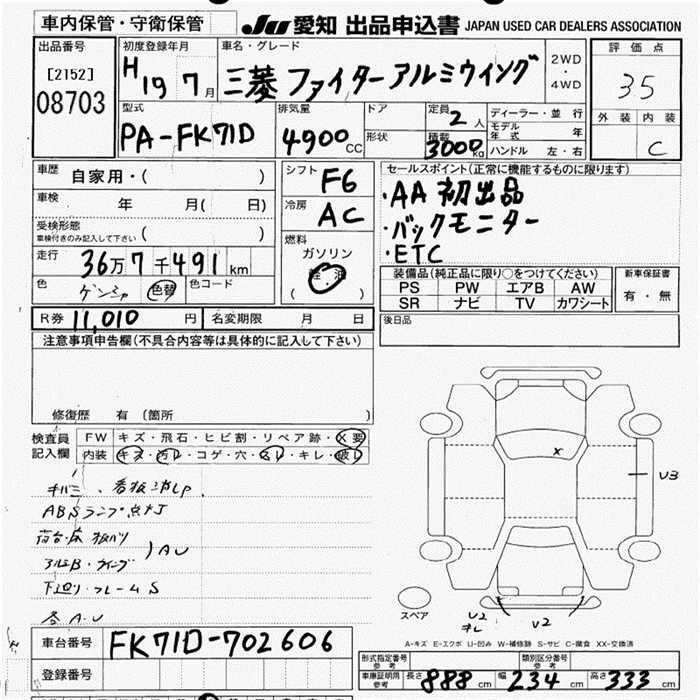 車内保管・守衛保管
JU 愛知 出品申込書 JAPAN USED CAR DEALERS ASSOCIATION
出品番号
[2152]
08703
初度登録年月
H19 7月
車名・グレード
三菱 ファイターアルミウイング
2WD
・
4WD
評価点
35
外装 内装
C
型式
PA-FK71D
排気量
4900CC
ドア
形状
定員
2人
積載
3000kg
ディーラー・並行
モデル年式 年
ハンドル 左・右
車歴
自家用・( )
車検
年 月( 日)
受検形態
車検付きのみ記入して下さい ( )
走行
36万7千491km
色
ゲンシャ
色替
色コード
シフト
F6
冷房
AC
燃料
ガソリン
軽油
( )
セールスポイント(正常に機能するものに限ります)
・AA初出品
・バックモニター
・ETC
装備品(純正品に限り○をつけてください)
PS PW エアB AW
SR ナビ TV カワシート
新車保証書
有・無
R券 11,010円
名変期限 月 日
後日品
注意事項申告欄(不具合内容等は具体的に記入して下さい)
修復歴 有 (箇所 )
検査員
記入欄
FW キズ・飛石・ヒビ割・リペア跡・X要
内装 キズ・汚レ・コゲ・穴・スレ・キレ・破レ
ABSランプ点灯
荷台・床
アルミB・ウイング
AU
下廻り・フレームS
各A・U
X
U3
U2
キレ
U2
スペア
A-キズ E-エクボ U-凹み W-補修跡 S-サビ C-腐食 XX-交換済
車台番号 FK71D-702606
登録番号
形式指定番号
参考
類別区分番号
参考
車庫証明用
参考
長さ 888cm 幅 234cm 高さ 333cm